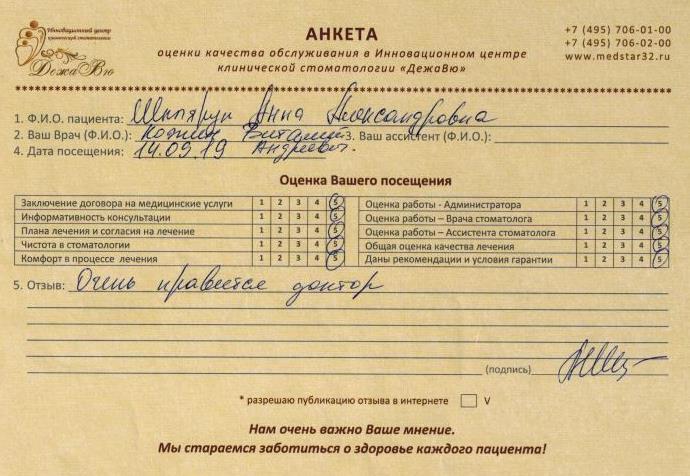 Инновационный центр
клинической стоматологии
ДежаВю
АНКЕТА
оценки качества обслуживания в Инновационном центре
клинической стоматологии «ДежаВю»
+7 (495) 706-01-00
+7 (495) 706-02-00
www.medstar32.ru
1. Ф.И.О. пациента: Анна Александровна
2. Ваш Врач (Ф.И.О.): Виталий 3. Ваш ассистент (Ф.И.О.):
4. Дата посещения: 14.09.19 Андреевич.
Оценка Вашего посещения
Заключение договора на медицинские услуги 1 2 3 4 5
Информативность консультации 1 2 3 4 5
Плана лечения и согласия на лечение 1 2 3 4 5
Чистота в стоматологии 1 2 3 4 5
Комфорт в процессе лечения 1 2 3 4 5
Оценка работы - Администратора 1 2 3 4 5
Оценка работы – Врача стоматолога 1 2 3 4 5
Оценка работы – Ассистента стоматолога 1 2 3 4 5
Общая оценка качества лечения 1 2 3 4 5
Даны рекомендации и условия гарантии 1 2 3 4 5
5. Отзыв: Очень нравится доктор
(подпись)
* разрешаю публикацию отзыва в интернете V
Нам очень важно Ваше мнение.
Мы стараемся заботиться о здоровье каждого пациента!